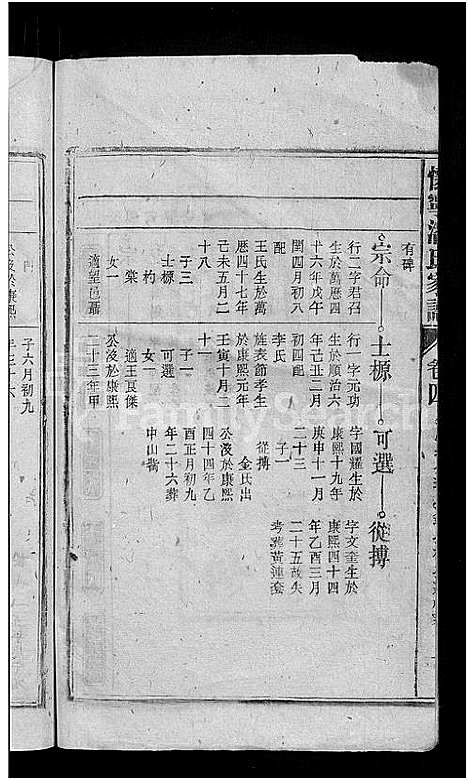 懷寧潘氏家譜 卷四
有碑
宗命 士標 可選 從摶
行二字君召
生於萬曆四
十六年戊午
閏四月初八
配
王氏生於萬
曆四十七年
己未五月二
十八
子三
士標
杓
棠
女一
適望邑聶
行一字元功
生於順治六
年己丑二月
初四配
李氏
旌表節孝生
於康熙元年
壬寅十月二
十一
子一
可選
女一
適王良傑
公歿於康熙
二十三年甲
字國耀生於
康熙十九年
庚申十一月
二十三
子一
從摶
金氏出
公歿於康熙
四十四年乙
酉正月初九
年二十六葬
中山衝
字文奎生於
康熙四十四
年乙酉三月
二十五故失
考葬黃連套
子六月初九
公歿於康熙
FamilySearch